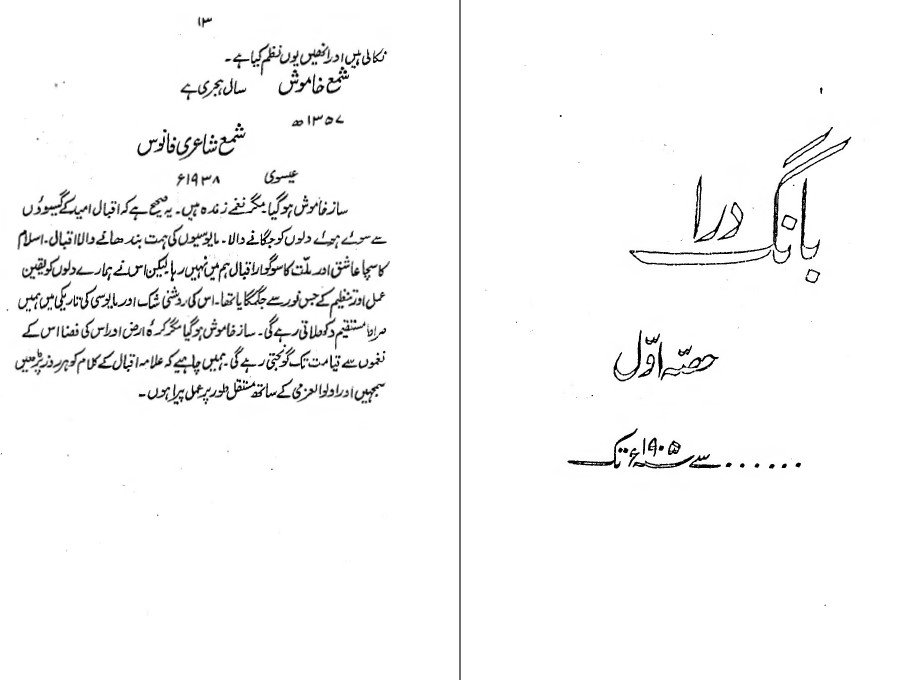 ۱۳
نکالی ہیں اور انھیں یوں نظم کیا ہے۔
شمع خاموش سال ہجری ہے
۱۳۵۷ھ
شمع شاعری فانوس
عیسوی ۱۹۳۸ء
ساز خاموش ہوگیا مگر نغمے زندہ ہیں۔ یہ صحیح ہے کہ اقبال امید کے گیسوؤں
سے سوئے ہوئے دلوں کو جگانے والا۔ مایوسیوں کی ہمت بندھانے والا اقبال۔ اسلام
کا سچا عاشق اور ملّت کا سوگوار اقبال ہم میں نہیں رہا لیکن اس نے ہمارے دلوں کو یقین
عمل اور تنظیم کے جس نور سے جگمگایا تھا۔ اس کی روشنی شک اور مایوسی کی تاریکی میں ہمیں
صراط مستقیم دکھلاتی رہے گی۔ ساز خاموش ہوگیا مگر کرۂ ارض اور اس کی فضا اس کے
نغموں سے قیامت تک گونجتی رہے گی۔ ہمیں چاہیے کہ علامہ اقبال کے کلام کو ہر روز پڑھیں
سمجھیں اور اولوالعزمی کے ساتھ مستقل طور پر عمل پیرا ہوں۔
بانگ درا
حصّہ اوّل
....... سے ۱۹۰۵ء تک